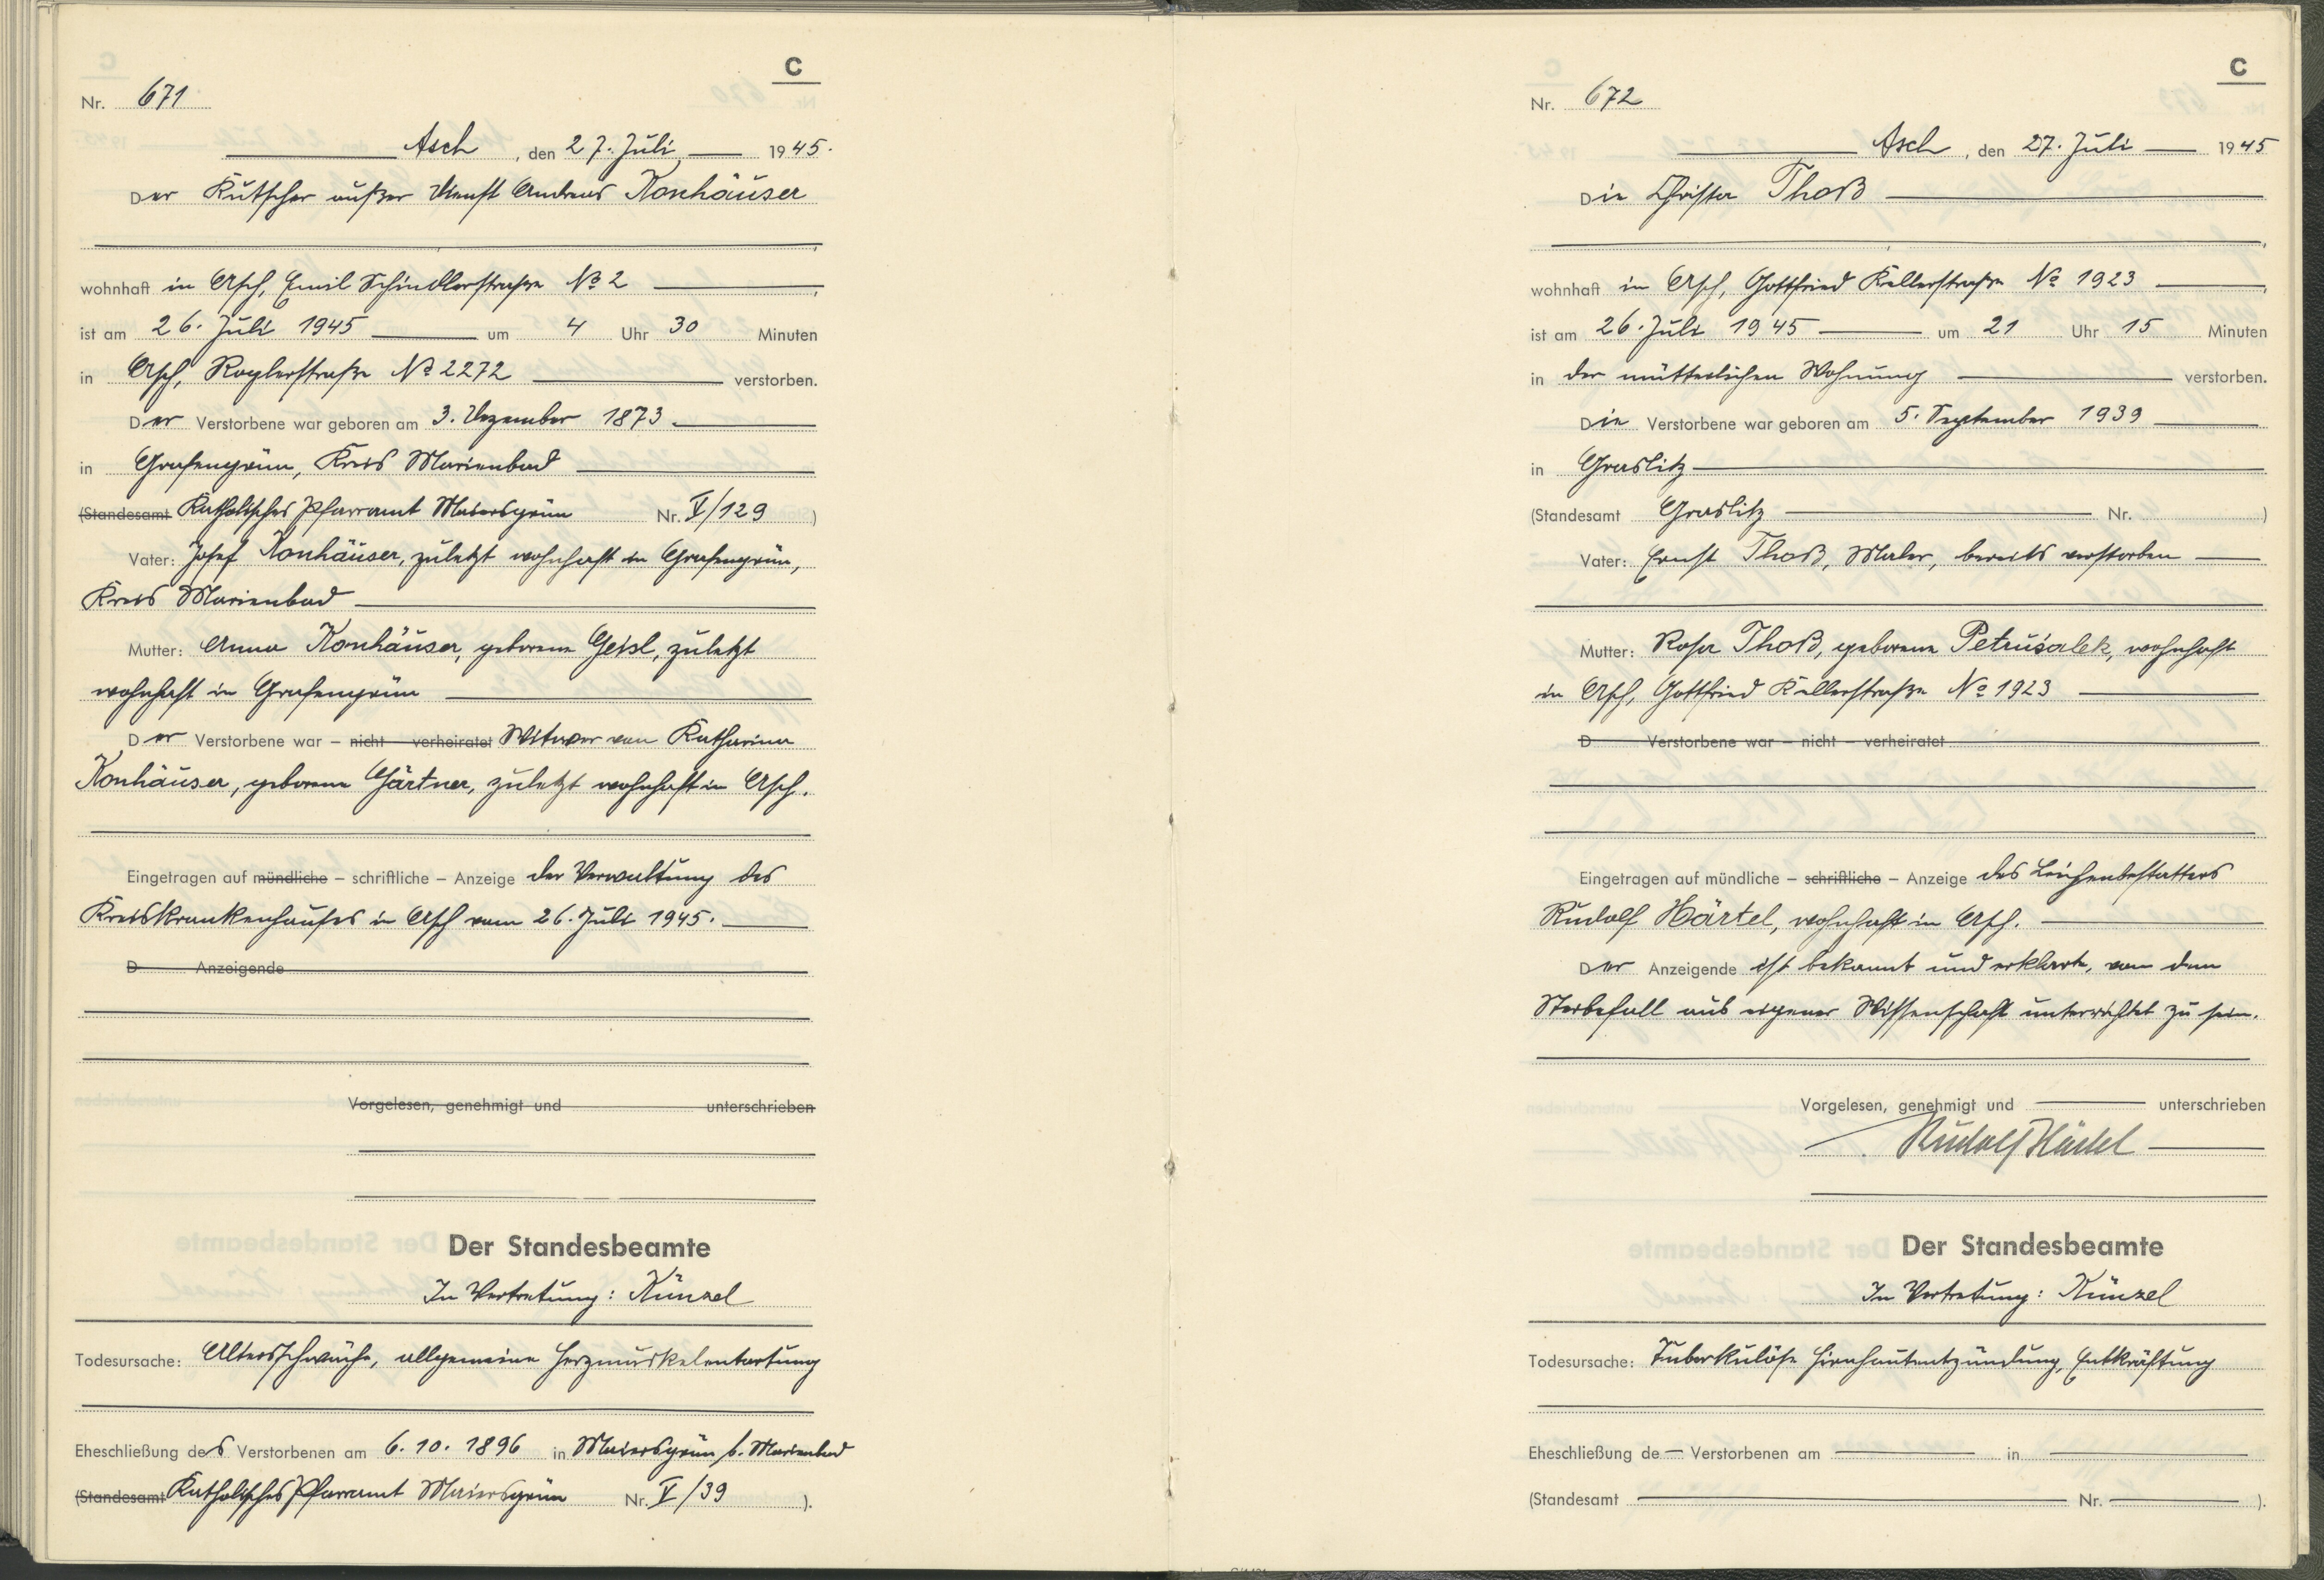 C
Nr. 671
Asch, den 27. Juli 1945.
Der Kutscher außer Dienst Andreas Konhäuser
wohnhaft in Asch, Emil Schindlerstraße № 2,
ist am 26. Juli 1945 um 4 Uhr 30 Minuten
in Asch, Roglerstraße № 2272 verstorben.
Der Verstorbene war geboren am 3. Dezember 1873
in Grafengrün, Kreis Marienbad
(Standesamt Katholisches Pfarramt Maiersgrün Nr. V/129)
Vater: Josef Konhäuser, zuletzt wohnhaft in Grafengrün,
Kreis Marienbad
Mutter: Anna Konhäuser, geborene Geisl, zuletzt
wohnhaft in Grafengrün
Der Verstorbene war – nicht – verheiratet Witwer von Katharina
Konhäuser, geborene Gärtner, zuletzt wohnhaft in Asch.
Eingetragen auf mündliche – schriftliche – Anzeige der Verwaltung des
Kreiskrankenhauses in Asch vom 26. Juli 1945.
D Anzeigende
Vorgelesen, genehmigt und unterschrieben
Der Standesbeamte
In Vertretung: Künzel
Todesursache: Altersschwäche, allgemeine Herzmuskelentartung
Eheschließung des Verstorbenen am 6.10.1896 in Maiersgrün b. Marienbad
(Standesamt Katholisches Pfarramt Maiersgrün Nr. V/39).
C
Nr. 672
Asch, den 27. Juli 1945
Die Christa Thoß
wohnhaft in Asch, Gottfried Kellerstraße № 1923,
ist am 26. Juli 1945 um 21 Uhr 15 Minuten
in der mütterlichen Wohnung verstorben.
Die Verstorbene war geboren am 5. September 1939
in Graslitz
(Standesamt Graslitz Nr. )
Vater: Ernst Thoß, Maler, bereits verstorben
Mutter: Rosa Thoß, geborene Petrusalek, wohnhaft
in Asch, Gottfried Kellerstraße № 1923
D Verstorbene war – nicht – verheiratet
Eingetragen auf mündliche – schriftliche – Anzeige des Leichenbestatters
Rudolf Härtel, wohnhaft in Asch.
Der Anzeigende ist bekannt und erklärte, von dem
Sterbefall aus eigener Wissenschaft unterrichtet zu sein.
Vorgelesen, genehmigt und unterschrieben
Rudolf Härtel
Der Standesbeamte
In Vertretung: Künzel
Todesursache: Tuberkulöse Hirnhautentzündung, Entkräftung
Eheschließung de Verstorbenen am in
(Standesamt Nr. ).